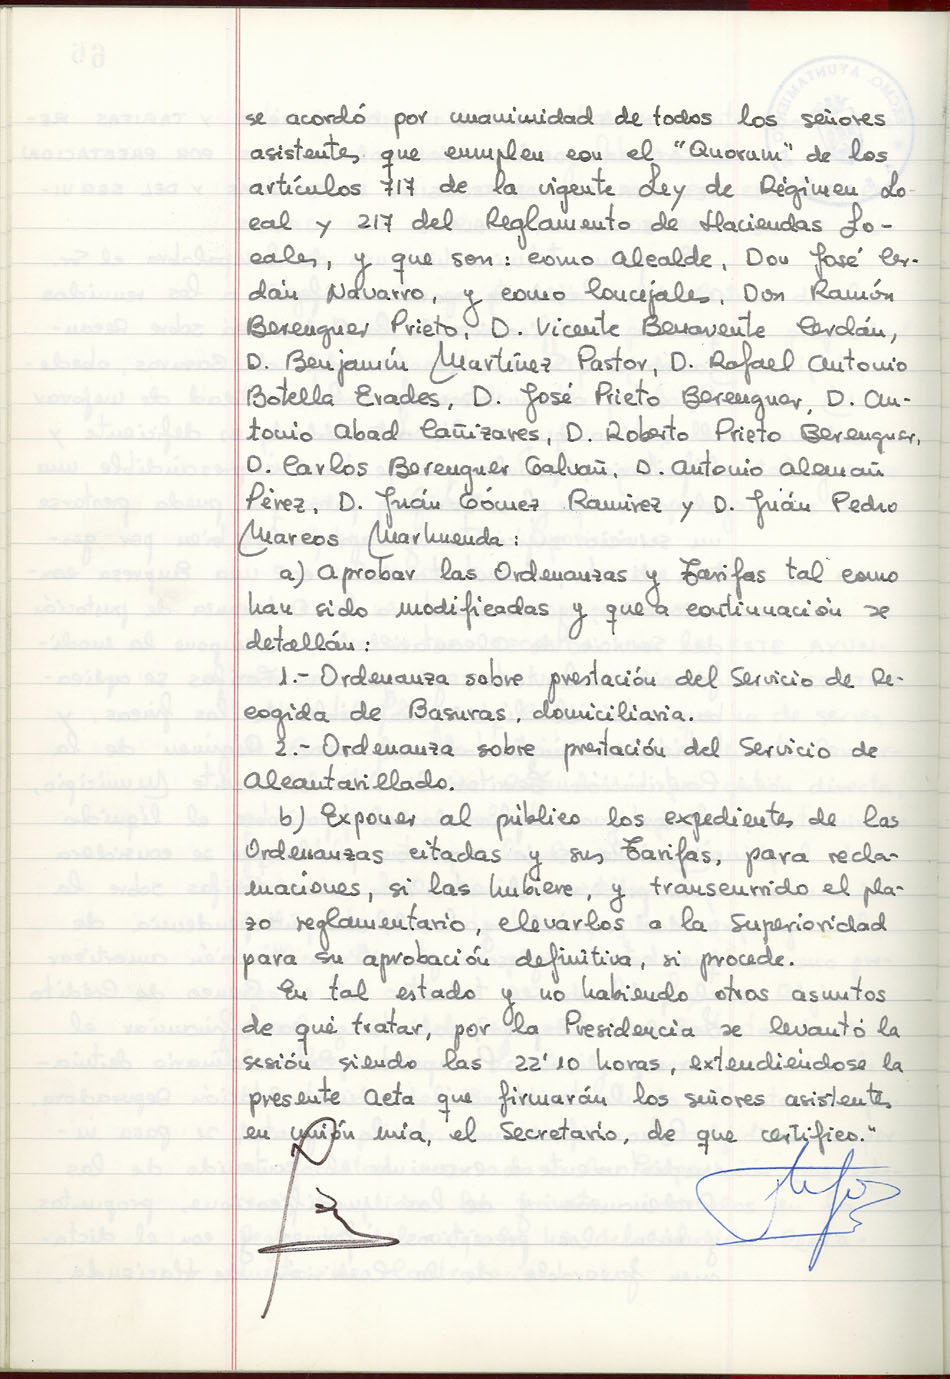 se acordó por unanimidad de todos los señores
asistentes que cumplen con el "Quorum" de los
artículos 717 de la vigente Ley de Régimen Lo-
cal y 217 del Reglamento de Haciendas Lo-
cales, y que son: como Alcalde, Don José Cer-
dán Navarro, y como Concejales, Don Ramón
Berenguer Prieto, D. Vicente Benavente Cerdán,
D. Benjamín Martínez Pastor, D. Rafael Antonio
Botella Erades, D. José Prieto Berenguer, D. An-
tonio Abad Cañizares, D. Roberto Prieto Berenguer,
D. Carlos Berenguer Galvañ, D. Antonio Alemañ
Pérez, D. Juán Gómez Ramirez y D. Juán Pedro
Marcos Marhuenda:
a) Aprobar las Ordenanzas y Tarifas tal como
han sido modificadas y que a continuación se
detallán:
1.- Ordenanza sobre prestación del Servicio de Re-
cogida de Basuras, domiciliaria.
2.- Ordenanza sobre prestación del Servicio de
Alcantarillado.
b) Exponer al público los expedientes de las
Ordenanzas citadas y sus Tarifas, para recla-
maciones, si las hubiere, y transcurrido el pla-
zo reglamentario, elevarlos a la Superioridad
para su aprobación definitiva, si procede.
En tal estado y no habiendo otros asuntos
de qué tratar, por la Presidencia se levantó la
sesión siendo las 22'10 horas, extendiéndose la
presente Acta que firmarán los señores asistentes
en unión mia, el Secretario, de que certifico."